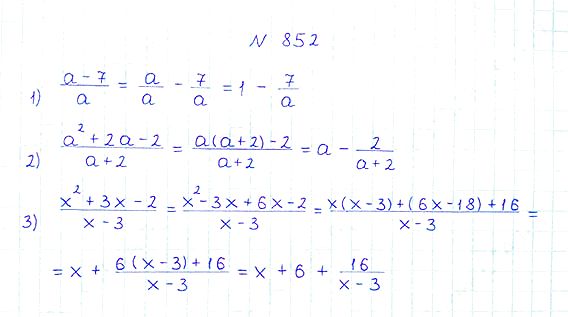 N 852
1) (a - 7)/a = a/a - 7/a = 1 - 7/a
2) (a² + 2a - 2)/(a + 2) = (a(a + 2) - 2)/(a + 2) = a - 2/(a + 2)
3) (x² + 3x - 2)/(x - 3) = (x² - 3x + 6x - 2)/(x - 3) = (x(x - 3) + (6x - 18) + 16)/(x - 3) =
= x + (6(x - 3) + 16)/(x - 3) = x + 6 + 16/(x - 3)